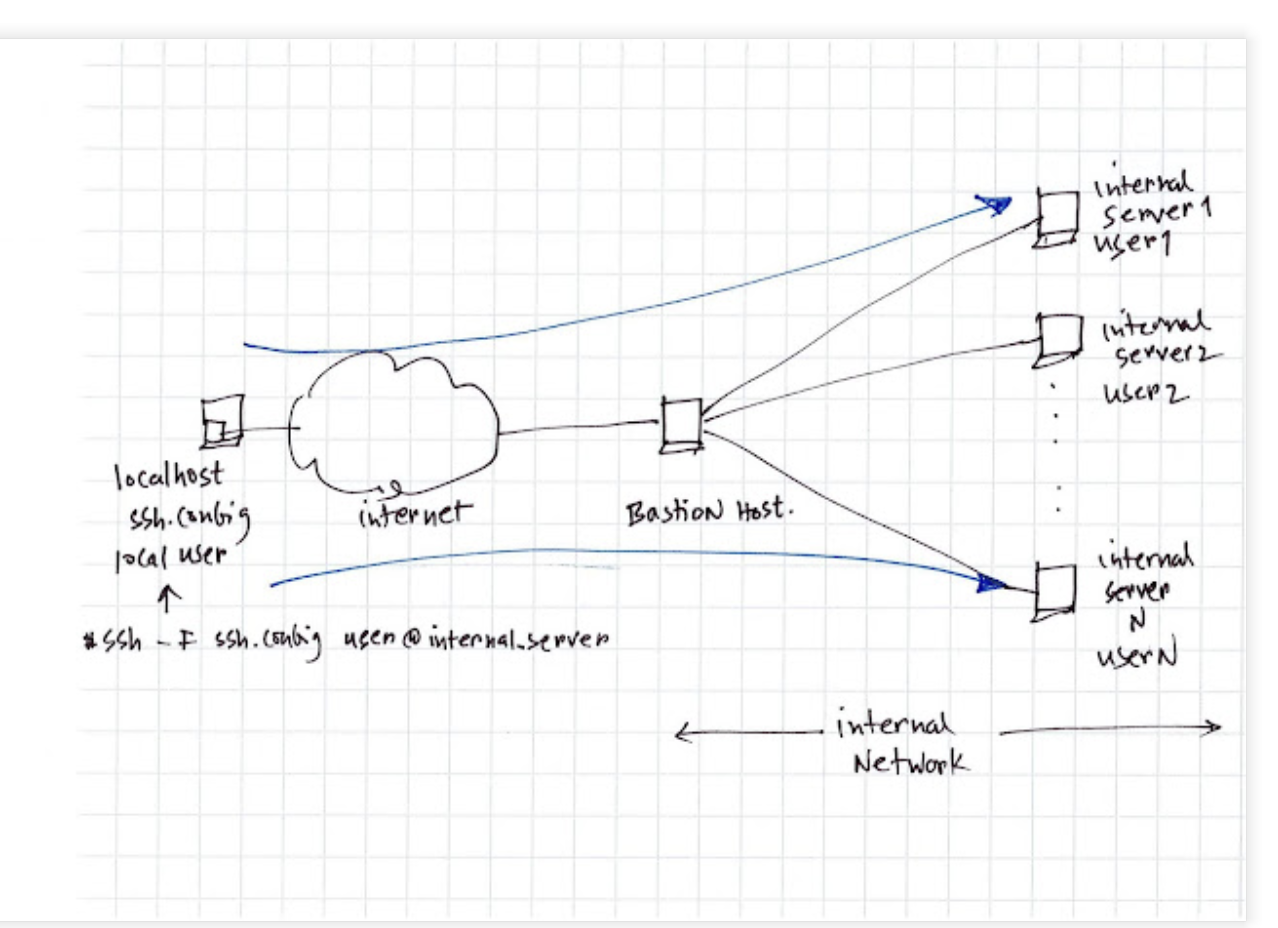 internal
server1
user1
internal
server2
user2
localhost
ssh.config
local user
internet
Bastion Host.
internal
server
N
userN
#ssh -F ssh.config user@internal_server
internal
Network